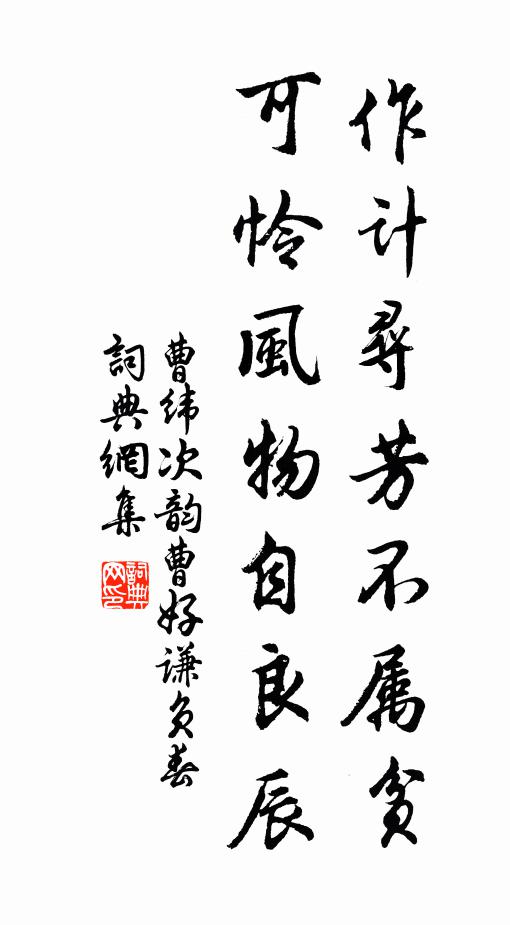 作计尋芳不属贫
可怜風物自良辰
曹纬次韵曹好谦负春
詞典網集
詞典网印